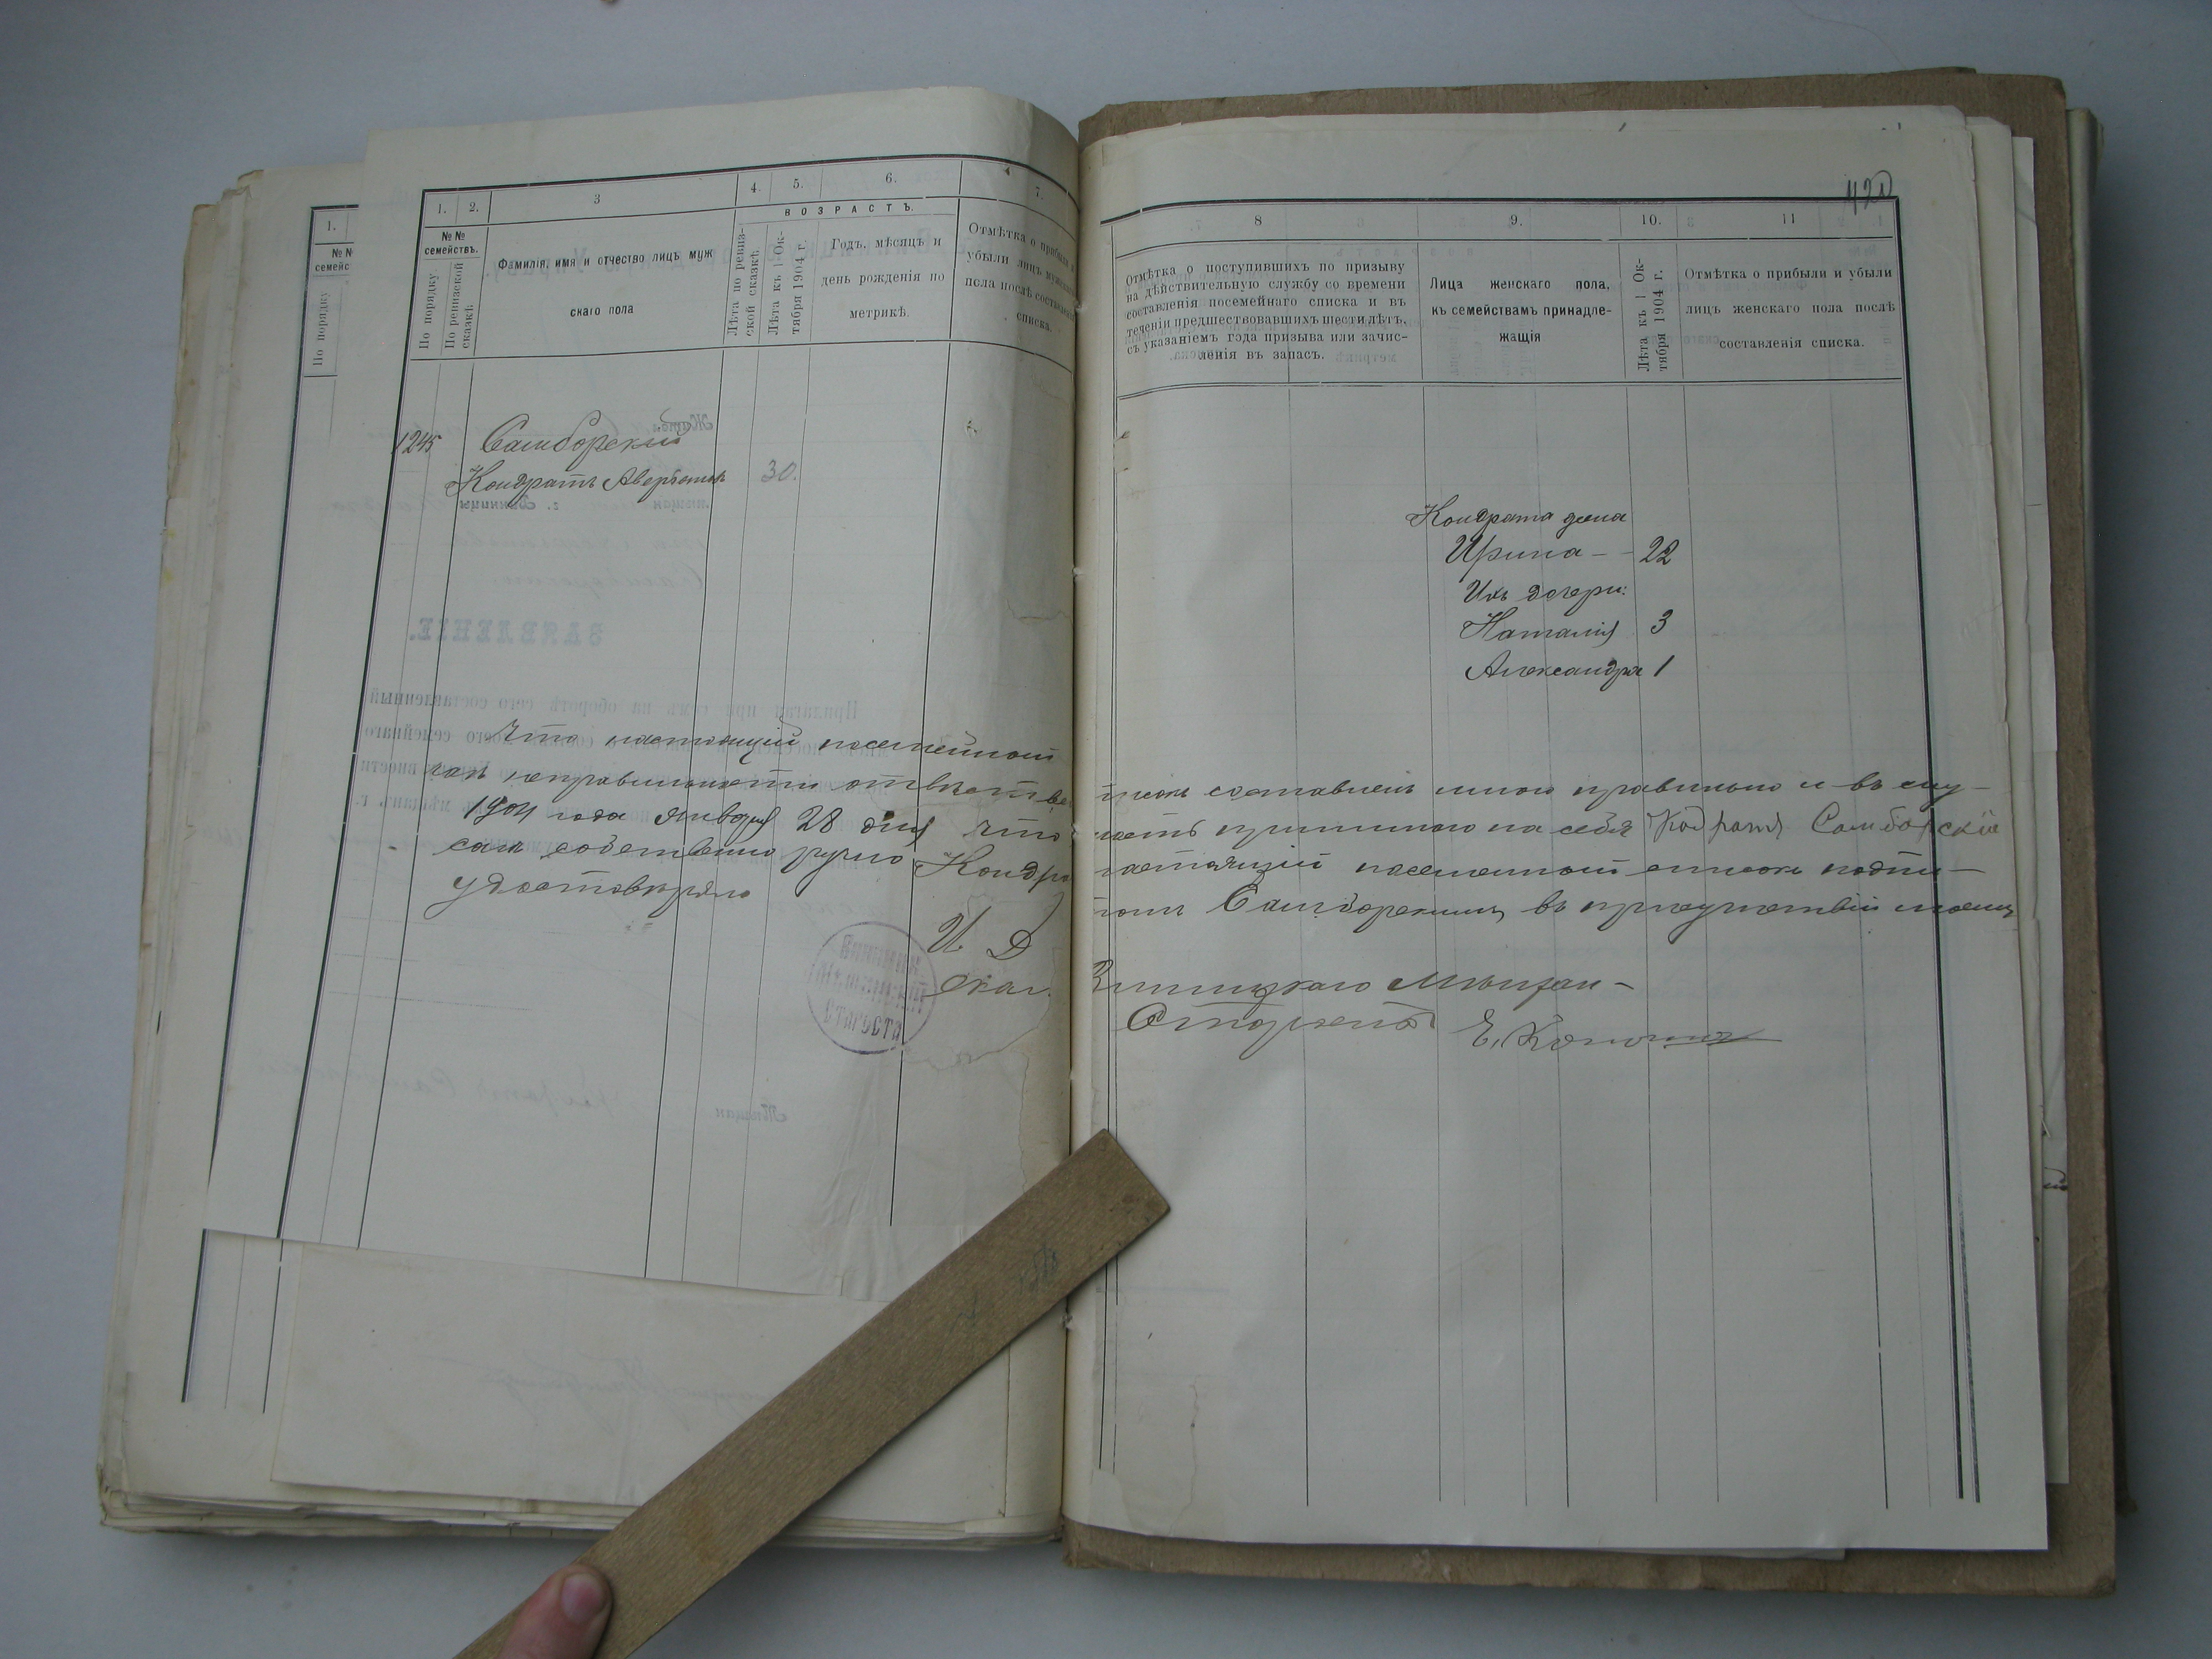 1.
№ №
семейс
По порядку
1. 2. 3 4. 5. 6. 7.
№ №
семействъ.
По порядку.
По ревизской сказкѣ.
Фамилія, имя и отчество лицъ муж
скаго пола
ВОЗРАСТЪ.
Лѣта по ревиз-
ской сказкѣ.
Лѣта къ 1 Ок-
тября 1904 г.
Годъ, мѣсяцъ и
день рожденія по
метрикѣ.
Отмѣтка о прибыли и
убыли лицъ мужскаго
пола послѣ составленія
списка.
1245 Самборскій
Кондратъ 30.
ЗАЯВЛЕНІЕ.
420
8 9. 10. 11
Отмѣтка о поступившихъ по призыву
на дѣйствительную службу со времени
составленія посемейнаго списка и въ
теченіи предшествовавшихъ шести лѣтъ,
съ указаніемъ года призыва или зачис-
ленія въ запасъ.
Лица женскаго пола,
къ семействамъ принадле-
жащія
Лѣта къ 1 Ок-
тября 1904 г.
Отмѣтка о прибыли и убыли
лицъ женскаго пола послѣ
составленія списка.
Кондрата жена
Ирина - - 22
Ихъ дочери:
Наталія 3
Александра 1
Что настоящій посемейный списокъ составленъ мною правильно и въ слу-
чаѣ неправильности отвѣтственность принимаю на себя Кодратъ Самборскій
1904 года Января 28 дня что настоящій посемейный списокъ подпи-
санъ собственно ручно Кондратомъ Самборскимъ въ присутствіи моемъ
удостовѣряю
И. Д. Винницкаго Мѣщан-
скаг. Старосты Е.